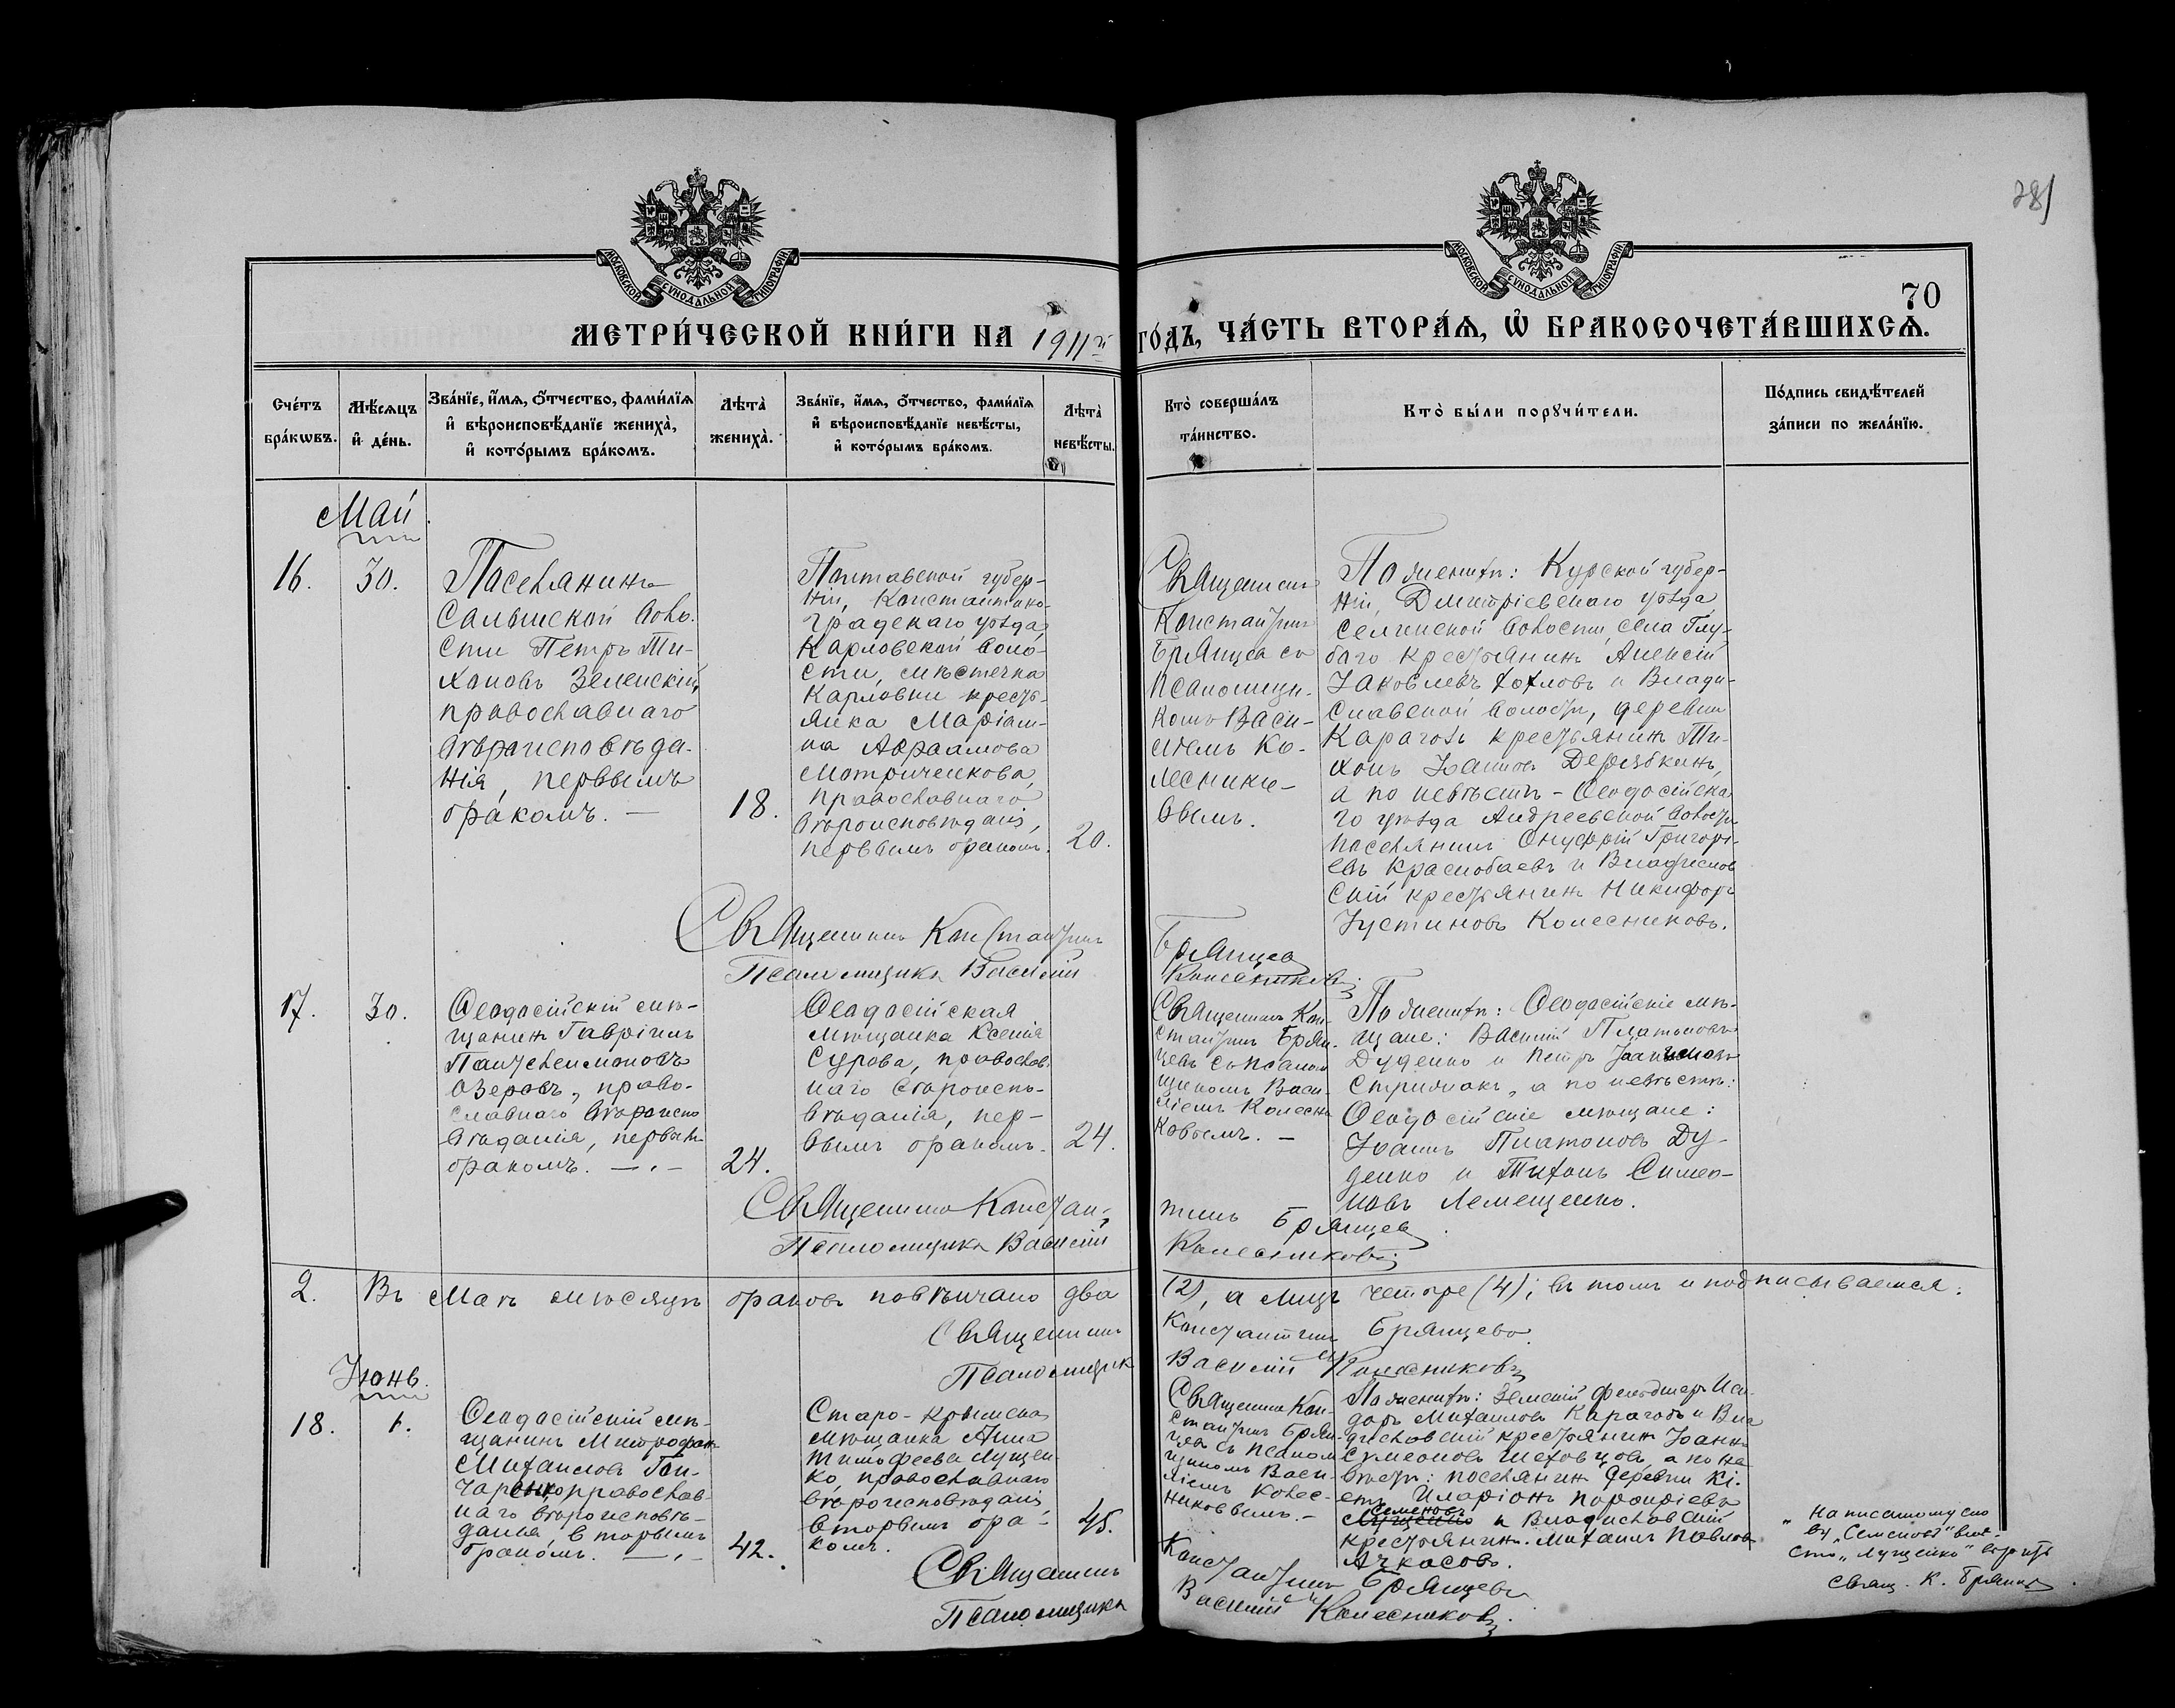 281
МОСКОВСКОЙ СѴНОДАЛЬНОЙ ТИПОГРАФІИ
МОСКОВСКОЙ СѴНОДАЛЬНОЙ ТИПОГРАФІИ
70
МЕТРИ́ЧЕСКОЙ КНИ́ГИ НА 1911й ГО́ДЪ, ЧА́СТЬ ВТОРА́Ѧ, Ѽ БРАКОСОЧЕТА́ВШИХСѦ.
Сче́тъ
бра́кѡвъ.
Мѣ́сѧцъ
и҆ де́нь.
Зва́нїе, и҆́мѧ, ѻ҆́тчество, фами́лїѧ
и҆ вѣроисповѣ́данїе жениха̀,
и҆ кото́рымъ бра́комъ.
Лѣта̀
жениха̀.
Зва́нїе, и҆́мѧ, ѻ҆́тчество, фами́лїѧ
и҆ вѣроисповѣ́данїе невѣ́сты,
и҆ кото́рымъ бра́комъ.
Лѣта̀
невѣ́сты.
Кто̀ соверша́лъ
та́инство.
Кто̀ бы́ли порꙋчи́тели.
По́дпись свидѣ́телей
за́писи по жела́нїю.
Май
16.
30.
Поселянинъ
Салынской воло-
сти Петръ Ти-
хоновъ Зеленскій,
православнаго
вѣроисповѣда-
нія, первымъ
бракомъ. —
18.
Полтавской губер-
ніи, Константино-
градскаго уѣзда,
Карловской воло-
сти, мѣстечка
Карловки кресть-
янка Маріам-
на Авраамова
православнаго
вѣроисповѣданія,
первымъ бракомъ.
20.
Священникъ
Константинъ
Брянцевъ съ
псаломщи-
комъ Васи-
ліемъ Ко-
леснико-
вымъ.
По женихѣ: Курской губер-
ніи, Дмитріевскаго уѣзда,
волости, села Глу-
баго крестьянинъ Алексій
Іаковлевъ Хохловъ и Влади-
славской волости, деревни
Карагозъ крестьянинъ Ти-
хонъ Іоанновъ Дерябкинъ,
а по невѣстѣ - Ѳеодосійска-
го уѣзда Андреевской волости
поселянинъ Онуфрій Григорі-
евъ Краснобаевъ и Владислав
скій крестьянинъ Никифоръ
Іустиновъ Колесниковъ.
Священникъ Константинъ Брянцевъ
Псаломщикъ Василій Колесниковъ
17.
30.
Ѳеодосійскій мѣ-
щанинъ Гавріилъ
Пантелеимоновъ
Озеровъ, право-
славнаго вѣроиспо
вѣданія, первымъ
бракомъ. —
24.
Ѳеодосійская
мѣщанка Ксенія
Сурова, православ-
наго вѣроиспо-
вѣданія, пер-
вымъ бракомъ.
24.
Священникъ Кон-
стантинъ Брян-
цевъ съ псалом
щикомъ Васи-
ліемъ Колесни
ковымъ. —
По женихѣ: Ѳеодосійскіе мѣ-
щане: Василій Платоновъ
Дуденко и Петръ
Стрижакъ, а по невѣстѣ:
Ѳеодосійскіе мѣщане:
Іоаннъ Платоновъ Ду-
денко и Тихонъ Симео-
новъ Лемещенко.
Священникъ Константинъ Брянцевъ
Псаломщикъ Василій Колесниковъ
2. Въ Маѣ мѣсяцѣ браковъ повѣнчано два (2), а лицъ четыре (4); въ томъ и подписываемся:
Священникъ Константинъ Брянцевъ.
Псаломщикъ Василій Колесниковъ
Іюнь.
18.
1.
Ѳеодосійскій мѣ-
щанинъ Митрофанъ
Михаиловъ Гон-
чаренко, православ-
наго вѣроисповѣ-
данія, вторымъ
бракомъ. —
42.
Старо-Крымская
мѣщанка Анна
Тимофеева Лущен-
ко, православнаго
вѣроисповѣданія,
вторымъ бра-
комъ.
45.
Священникъ Кон-
стантинъ Брян-
цевъ съ псалом
щикомъ Васи-
ліемъ Колес-
никовымъ. —
По женихѣ: Земскій фельдшеръ Иси-
доръ Михаиловъ Карагозъ и Вла
диславскій крестьянинъ Іоаннъ
Симеоновъ Шеховцовъ, а по не-
вѣстѣ: поселянинъ деревни Кі-
етъ Иларіонъ Порфиріевъ
Семеновъ
Лущенко и Владиславскій
крестьянинъ Михаилъ Павловъ
Ачкасовъ.
„Написанному сло
ву „Семеновъ" вмѣ-
сто „Лущенко" вѣрить
свящ. К. Брянцевъ
Священникъ Константинъ Брянцевъ
Псаломщикъ Василій Колесниковъ.